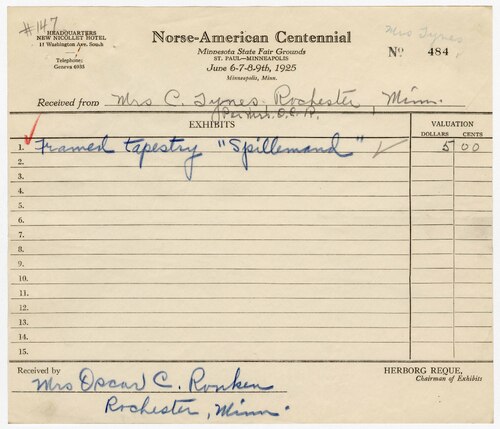 #147
HEADQUARTERS
NEW NICOLLET HOTEL
11 Washington Ave. South
Telephone:
Geneva 6935
Norse-American Centennial
Minnesota State Fair Grounds
ST. PAUL—MINNEAPOLIS
June 6-7-8-9th, 1925
Minneapolis, Minn.
Mrs Tynes
No 484
Received from Mrs C. Tynes, Rochester, Minn.
Per Mrs. O. C. R.
EXHIBITS
VALUATION
DOLLARS CENTS
1. Framed tapestry "Spillemand" ✓ 5 00
2.
3.
4.
5.
6.
7.
8.
9.
10.
11.
12.
13.
14.
15.
Received by
Mrs Oscar C. Ronken
Rochester, Minn.
HERBORG REQUE,
Chairman of Exhibits